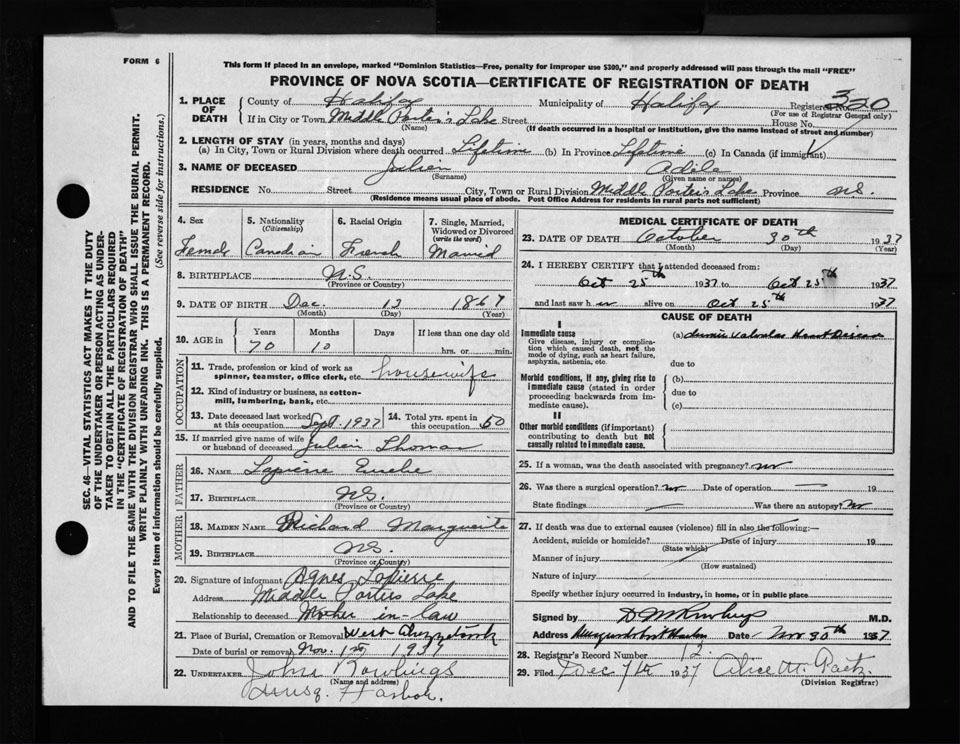 FORM 6
This form if placed in an envelope, marked "Dominion Statistics—Free, penalty for improper use $300," and properly addressed will pass through the mail "FREE"
PROVINCE OF NOVA SCOTIA—CERTIFICATE OF REGISTRATION OF DEATH
SEC. 46—VITAL STATISTICS ACT MAKES IT THE DUTY
OF THE UNDERTAKER OR PERSON ACTING AS UNDER-
TAKER TO OBTAIN ALL THE PARTICULARS REQUIRED
IN THE "CERTIFICATE OF REGISTRATION OF DEATH"
AND TO FILE THE SAME WITH THE DIVISION REGISTRAR WHO SHALL ISSUE THE BURIAL PERMIT.
WRITE PLAINLY WITH UNFADING INK. THIS IS A PERMANENT RECORD.
Every item of information should be carefully supplied. (See reverse side for instructions.)
1. PLACE OF DEATH County of Halifax Municipality of Halifax Registered No. 320
(For use of Registrar General only)
If in City or Town Middle Porter's Lake Street House No.
(Name) (If death occurred in a hospital or institution, give the name instead of street and number)
2. LENGTH OF STAY (in years, months and days)
(a) In City, Town or Rural Division where death occurred Lifetime (b) In Province Lifetime (c) In Canada (if immigrant)
3. NAME OF DECEASED Julien Adile
(Surname) (Given name or names)
RESIDENCE No. Street City, Town or Rural Division Middle Porters Lake Province N.S.
(Residence means usual place of abode. Post Office Address for residents in rural parts not sufficient)
4. Sex Female
5. Nationality (Citizenship) Canadian
6. Racial Origin French
7. Single, Married, Widowed or Divorced (write the word) Married
8. BIRTHPLACE N.S.
(Province or Country)
9. DATE OF BIRTH Dec. 12 1867
(Month) (Day) (Year)
10. AGE in Years 70 Months 10 Days If less than one day old hrs. or min.
OCCUPATION
11. Trade, profession or kind of work as spinner, teamster, office clerk, etc. housewife
12. Kind of industry or business, as cotton-mill, lumbering, bank, etc.
13. Date deceased last worked at this occupation Sept. 1937
14. Total yrs. spent in this occupation 50
15. If married give name of wife or husband of deceased Julien Thomas
FATHER
16. NAME Lapierre
17. BIRTHPLACE N.S.
(Province or Country)
MOTHER
18. MAIDEN NAME Richard Marguerite
19. BIRTHPLACE N.S.
(Province or Country)
20. Signature of informant Agnes Lapierre
Address Middle Porters Lake
Relationship to deceased Mother in-law
21. Place of Burial, Cremation or Removal West Chezzetcook
Date of burial or removal Nov. 1st 1937
22. UNDERTAKER John Rowlings
(Name and address)
Musq. Harbor.
MEDICAL CERTIFICATE OF DEATH
23. DATE OF DEATH October 30th 1937
(Month) (Day) (Year)
24. I HEREBY CERTIFY that I attended deceased from:
Oct 25th 1937 to Oct 25th 1937
and last saw h er alive on Oct 25th 1937
CAUSE OF DEATH
I
Immediate cause
Give disease, injury or complication which caused death, not the mode of dying, such as heart failure, asphyxia, asthenia, etc.
(a) Valvular Heart Disease
due to
Morbid conditions, if any, giving rise to immediate cause (stated in order proceeding backwards from immediate cause).
(b)
due to
(c)
II
Other morbid conditions (if important) contributing to death but not causally related to immediate cause.
25. If a woman, was the death associated with pregnancy? no
26. Was there a surgical operation? no Date of operation — 19
State findings — Was there an autopsy? no
27. If death was due to external causes (violence) fill in also the following:—
Accident, suicide or homicide? Date of injury 19
(State which)
Manner of injury
(How sustained)
Nature of injury
Specify whether injury occurred in industry, in home, or in public place
Signed by M.D.
Address Musquodoboit Harbor Date Nov 30th 1937
28. Registrar's Record Number 12
29. Filed Dec 7th 1937 Alice M. Gaetz
(Division Registrar)